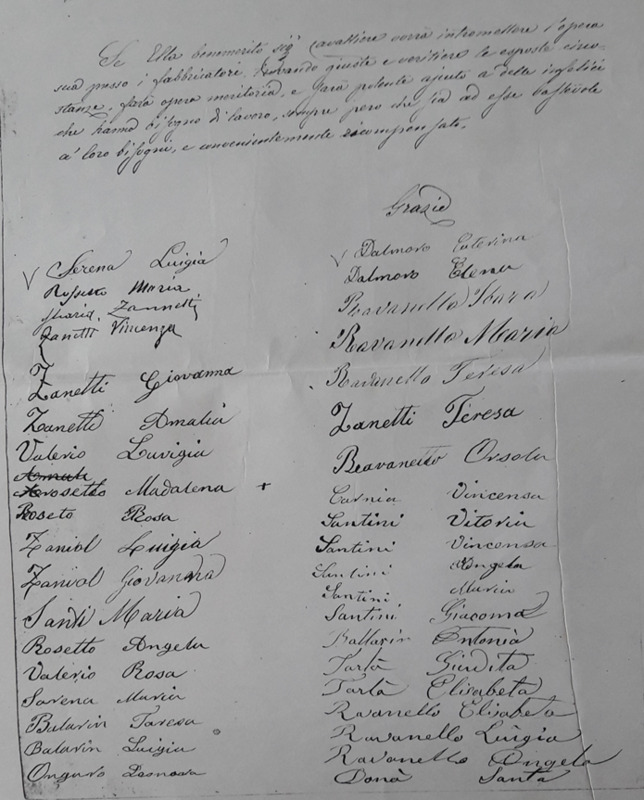 Se Ella benemerito sig.r Cavaliere vorrà intromettere l'opera
sua presso i fabbricatori, trovando giuste e veritiere le esposte circo-
stanze, farà opera meritoria, e sarà potente ajuto a delle infelici
che hanno bisogno di lavoro, sempre però che sia ad esse bastevole
a' loro bisogni, e convenientemente ricompensato.
Grazie
Serena Luigia
Rossetto Maria
Maria Zannetti
Zanetti Vincenza
Zanetti Giovanna
Zanetti Amalia
Valerio Luvigia
Rosetto Madalena +
Roseto Rosa
Zaniol Luigia
Zaniol Giovanna
Santi Maria
Rosetto Angela
Valerio Rosa
Sarena Maria
Balarin Taresa
Balarin Luigia
Ongaro
Dalmoro Caterina
Dalmoro Elena
Ravanello Mara
Ravanello Maria
Ravanello Teresa
Zanetti Teresa
Ravanello Orsola
Carnia Vincensa
Santini Vitoria
Santini Vincensa
Santini Angela
Santini Maria
Santini Giacoma
Ballarin Antonia
Tartà Giudita
Tartà Elisabeta
Ravanello Elisabeta
Ravanello Luigia
Ravanello Angela
Donà Santa